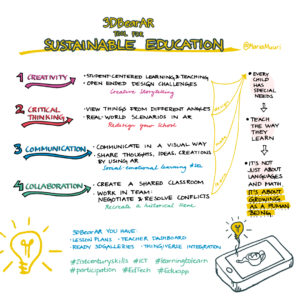 3DBear AR
TOOL FOR
SUSTAINABLE EDUCATION
@MariaMuuri
1 CREATIVITY
• STUDENT-CENTERED LEARNING & TEACHING
• OPEN ENDED DESIGN CHALLENGES
Creative Storytelling
2 CRITICAL THINKING
• VIEW THINGS FROM DIFFERENT ANGLES
• REAL-WORLD SCENARIOS IN AR
Redesign your School
3 COMMUNICATION
• COMMUNICATE IN A VISUAL WAY
• SHARE THOUGHTS, IDEAS, CREATIONS
BY USING AR
Social-emotional learning
4 COLLABORATION
• CREATE A SHARED CLASSROOM
WORK IN TEAM:
NEGOTIATE & RESOLVE CONFLICTS
Recreate a historical
• EVERY
CHILD
HAS
SPECIAL
NEEDS
• TEACH
THE WAY
THEY
LEARN
• IT'S NOT
JUST ABOUT
LANGUAGES
AND MATH
IT'S ABOUT
GROWING
AS A HUMAN
BEING
3DBear AR YOU HAVE
• LESSON PLANS • TEACHER DASHBOARD
• READY 3DGALLERIES • THINGIVERSE INTEGRATION
#21stcenturyskills #ICT #learningtolearn
#participation #EdTech